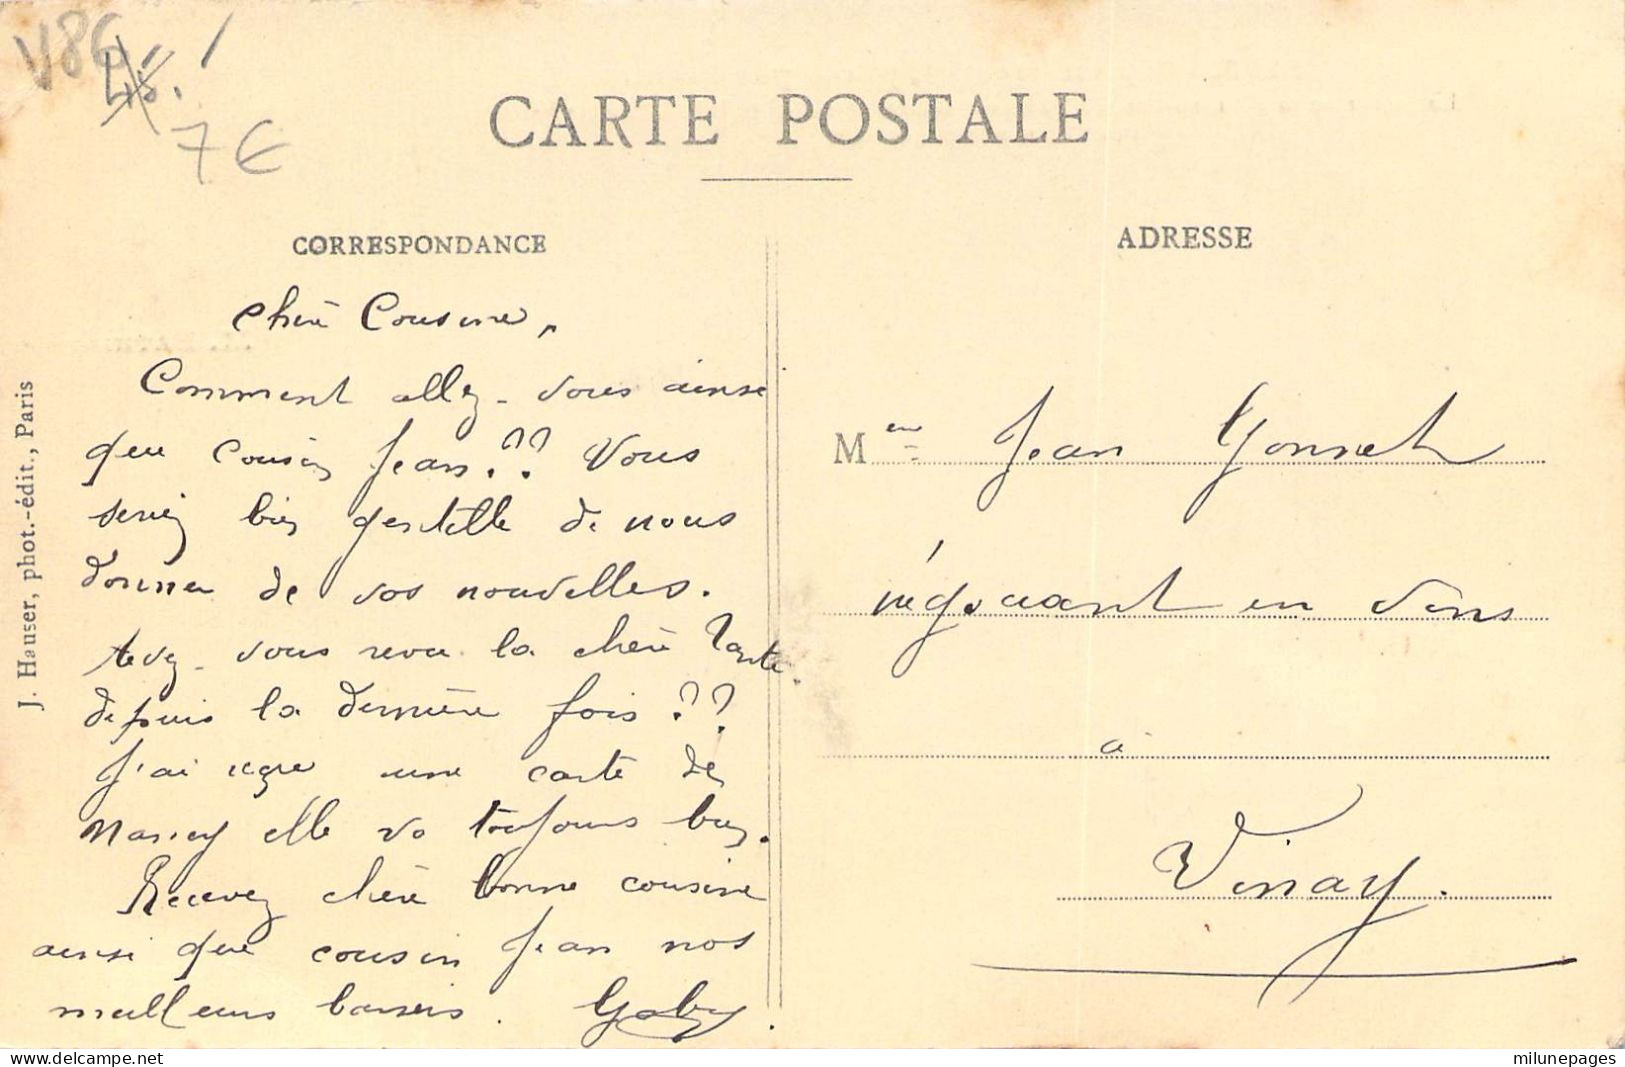 V86
7 €
CARTE POSTALE
CORRESPONDANCE
Chère Cousine,
Comment allez-vous ainsi
que cousin Jean ?? Vous
seriez bien gentille de nous
donner de vos nouvelles.
Avez-vous revu la chère Tante
depuis la dernière fois ??
J'ai reçu une carte de
Nancy elle va toujours bien.
Recevez chère bonne cousine
ainsi que cousin Jean nos
meilleurs baisers. Gaby.
J. Hauser, phot.-édit., Paris
ADRESSE
M Jean Gonnet
négociant en vins
à
Vinay.
milunepages